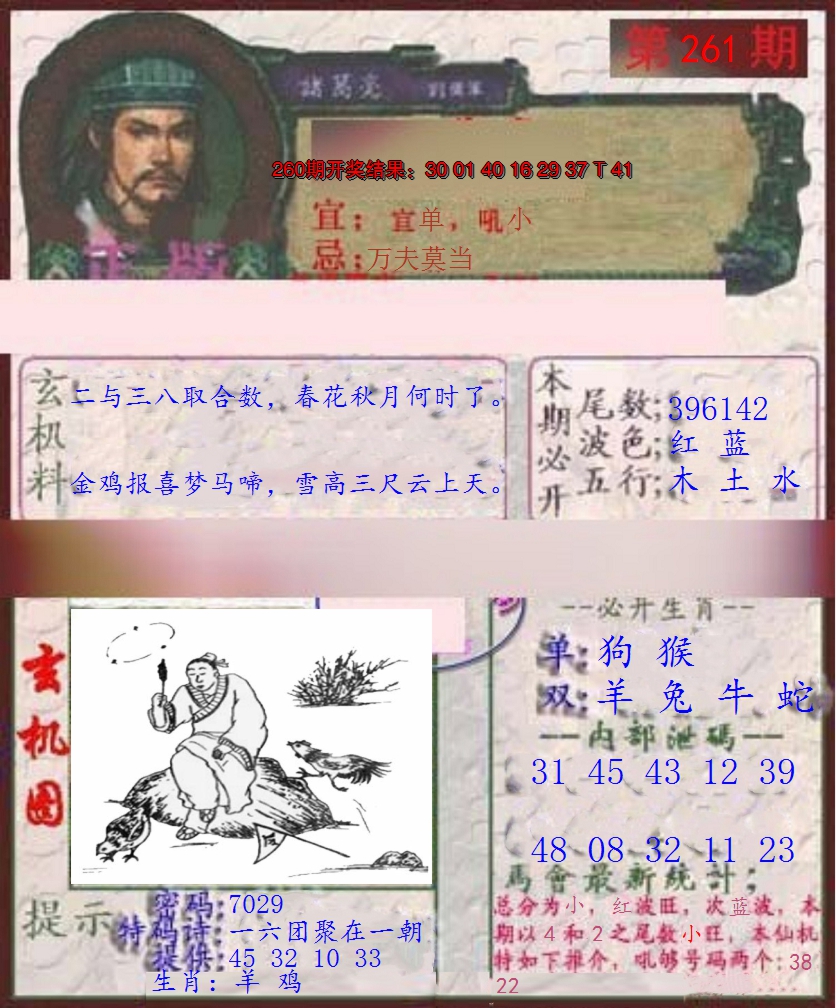 第 261 期
諸葛亮
260期开奖结果：30 01 40 16 29 37 T 41
宜：宜单，吼小
忌：万夫莫当
正版
玄机料
二与三八取合数，春花秋月何时了。
金鸡报喜梦马啼，雪高三尺云上天。
本期必开
尾数：396142
波色：红 蓝
五行：木 土 水
玄机图
--必开生肖--
单：狗 猴
双：羊 兔 牛 蛇
--内部泄碼--
31 45 43 12 39
48 08 32 11 23
馬會最新統計；
总分为小，红波旺，次蓝波，本
期以4和2之尾数小旺，本仙机
特如下推介，吼够号码两个：38
22
提示
密码：7029
特码诗：一六团聚在一朝
提供：45 32 10 33
生肖：羊 鸡